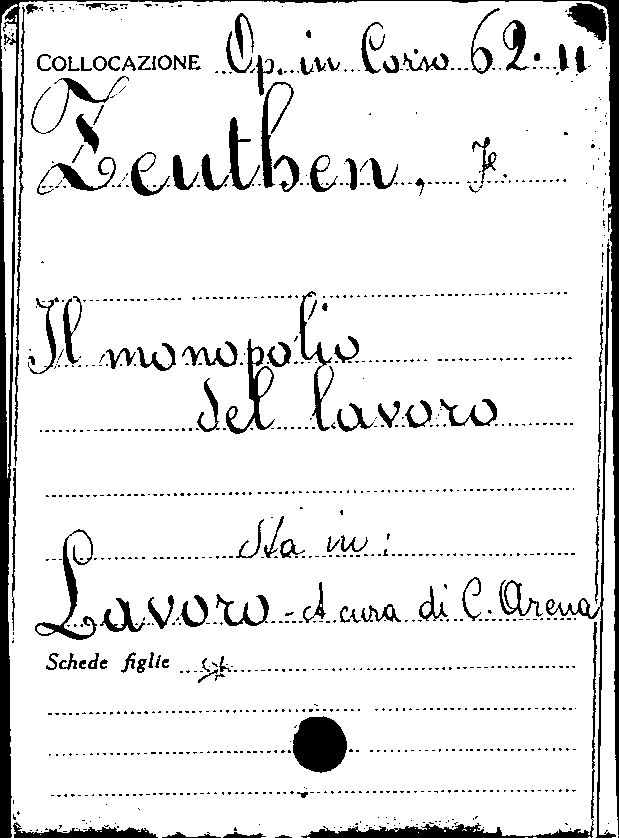 COLLOCAZIONE Op. in Corso 62.11
Zeuthen, Fr.
Il monopolio
del lavoro
Sta in:
Lavoro - A cura di C. Arena
Schede figlie